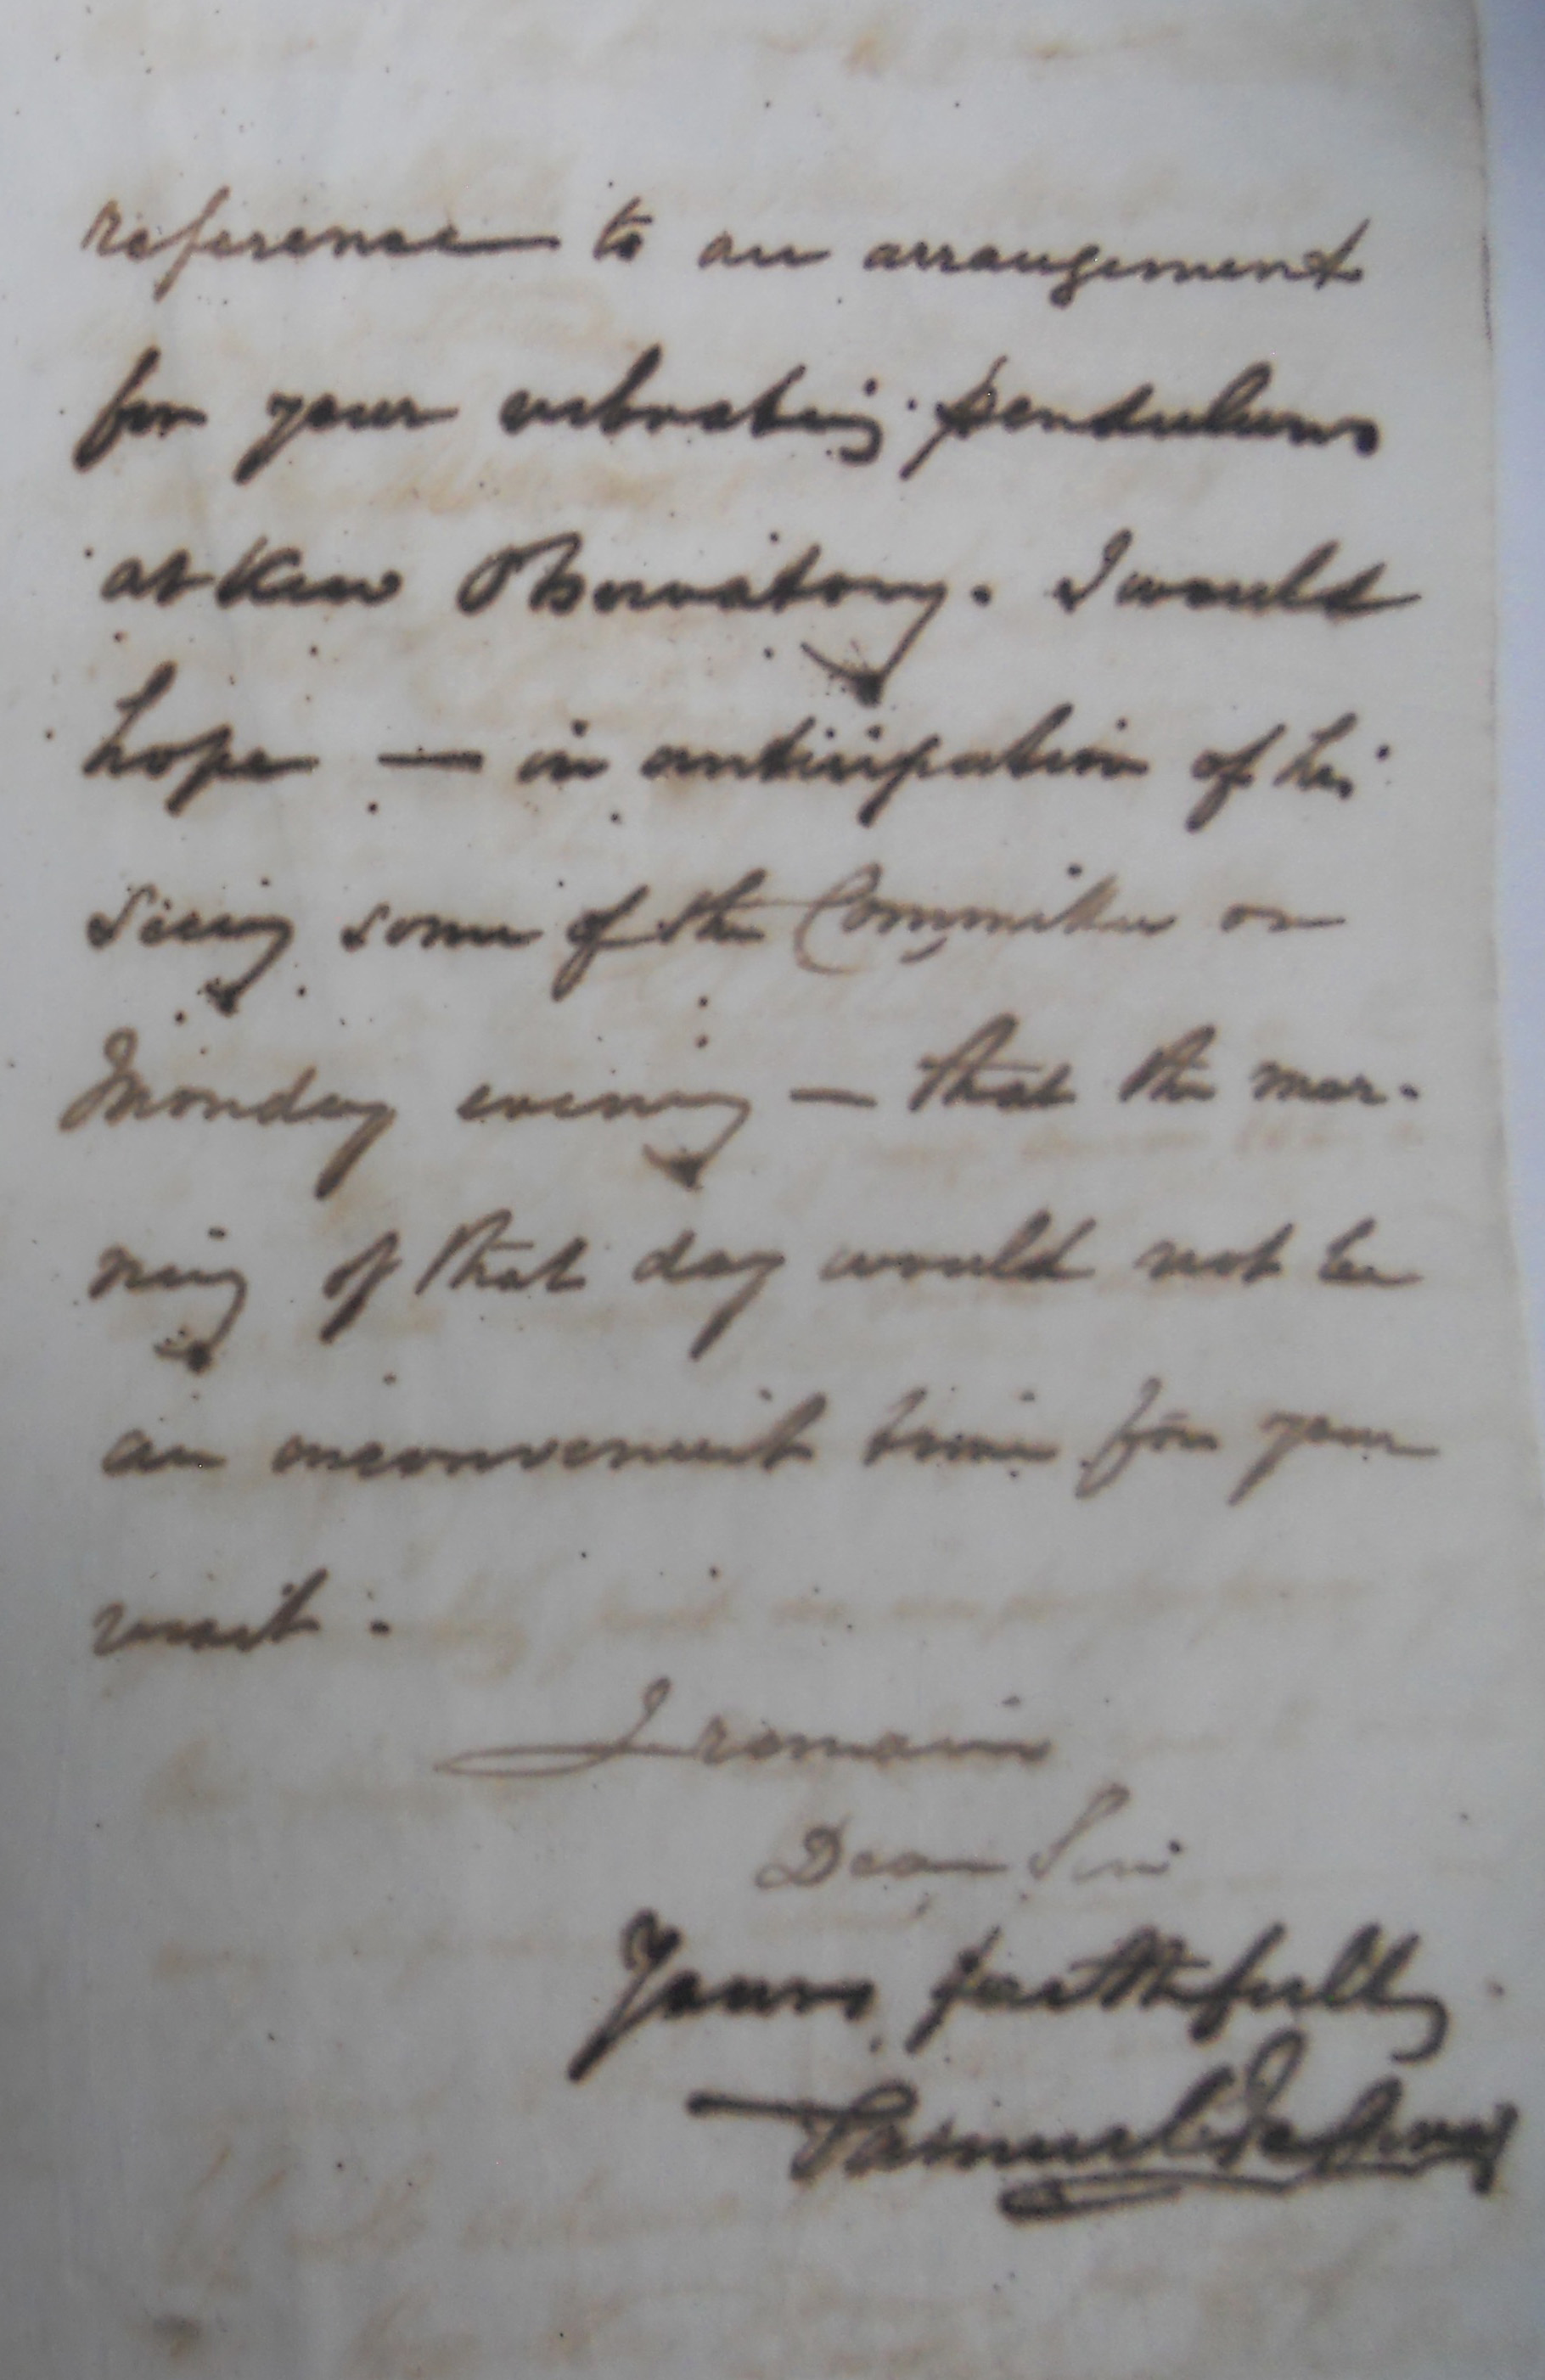 reference to an arrangement
for your vibrating pendulums
at Kew Observatory. I would
hope — in anticipation of his
seeing some of the Committee on
Monday evening — that the mor-
ning of that day would not be
an inconvenient time for your
visit.
I remain
Dear Sir
Yours faithfully
Samuel